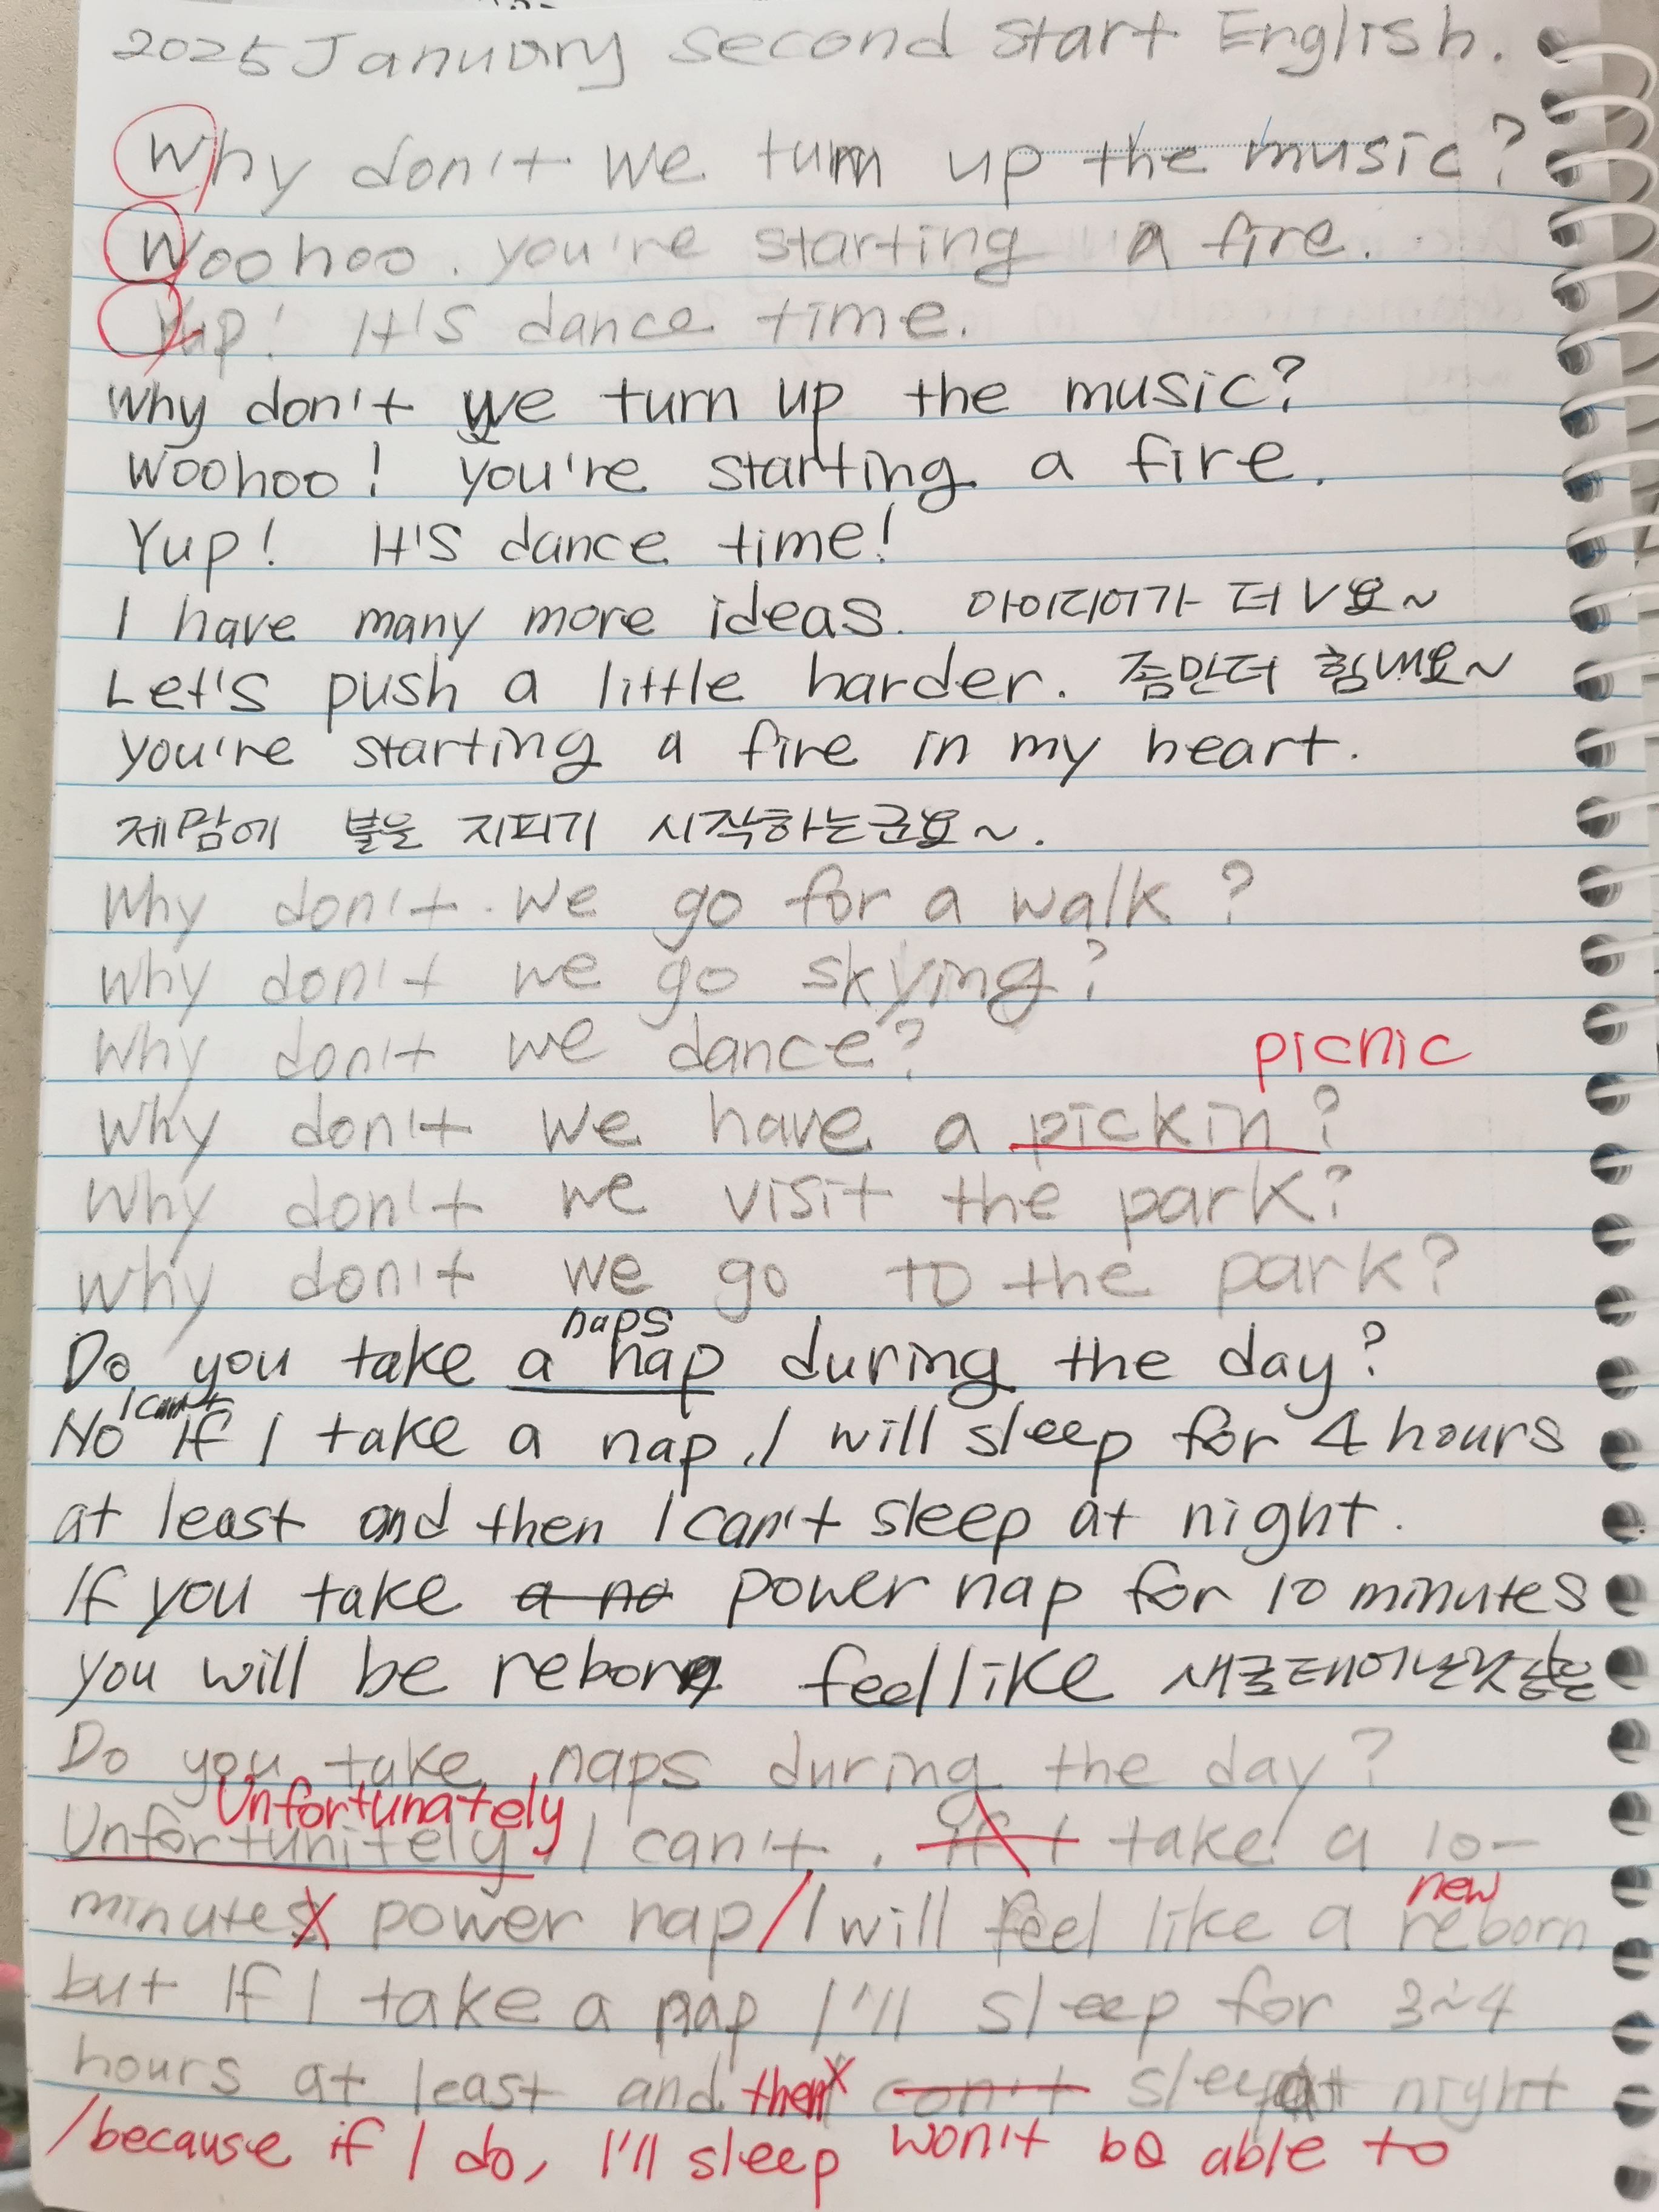 2025 January second start English.
Why don't we turn up the music?
Woohoo. you're starting a fire.
Yup! It's dance time.
Why don't we turn up the music?
Woohoo! you're starting a fire.
Yup! It's dance time!
I have many more ideas. 아이디어가 더 V요~
Let's push a little harder. 좀만더 힘내요~
you're starting a fire in my heart.
제맘에 불을 지피기 시작하는군요~.
Why don't we go for a walk?
Why don't we go skying?
Why don't we dance?
picnic
Why don't we have a pickin?
Why don't we visit the park?
Why don't we go to the park?
naps
Do you take a nap during the day?
I can't
No If I take a nap, I will sleep for 4 hours
at least and then I can't sleep at night.
If you take a na power nap for 10 minutes
you will be reborn feel like 새로태어난것같은
Do you take naps during the day?
Unfortunately
Unfortunitely I can't. If I take a 10-
new
minutes power nap/I will feel like a reborn
but If I take a nap I'll sleep for 3~4
hours at least and then can't sleep at night
/because if I do, I'll sleep won't be able to